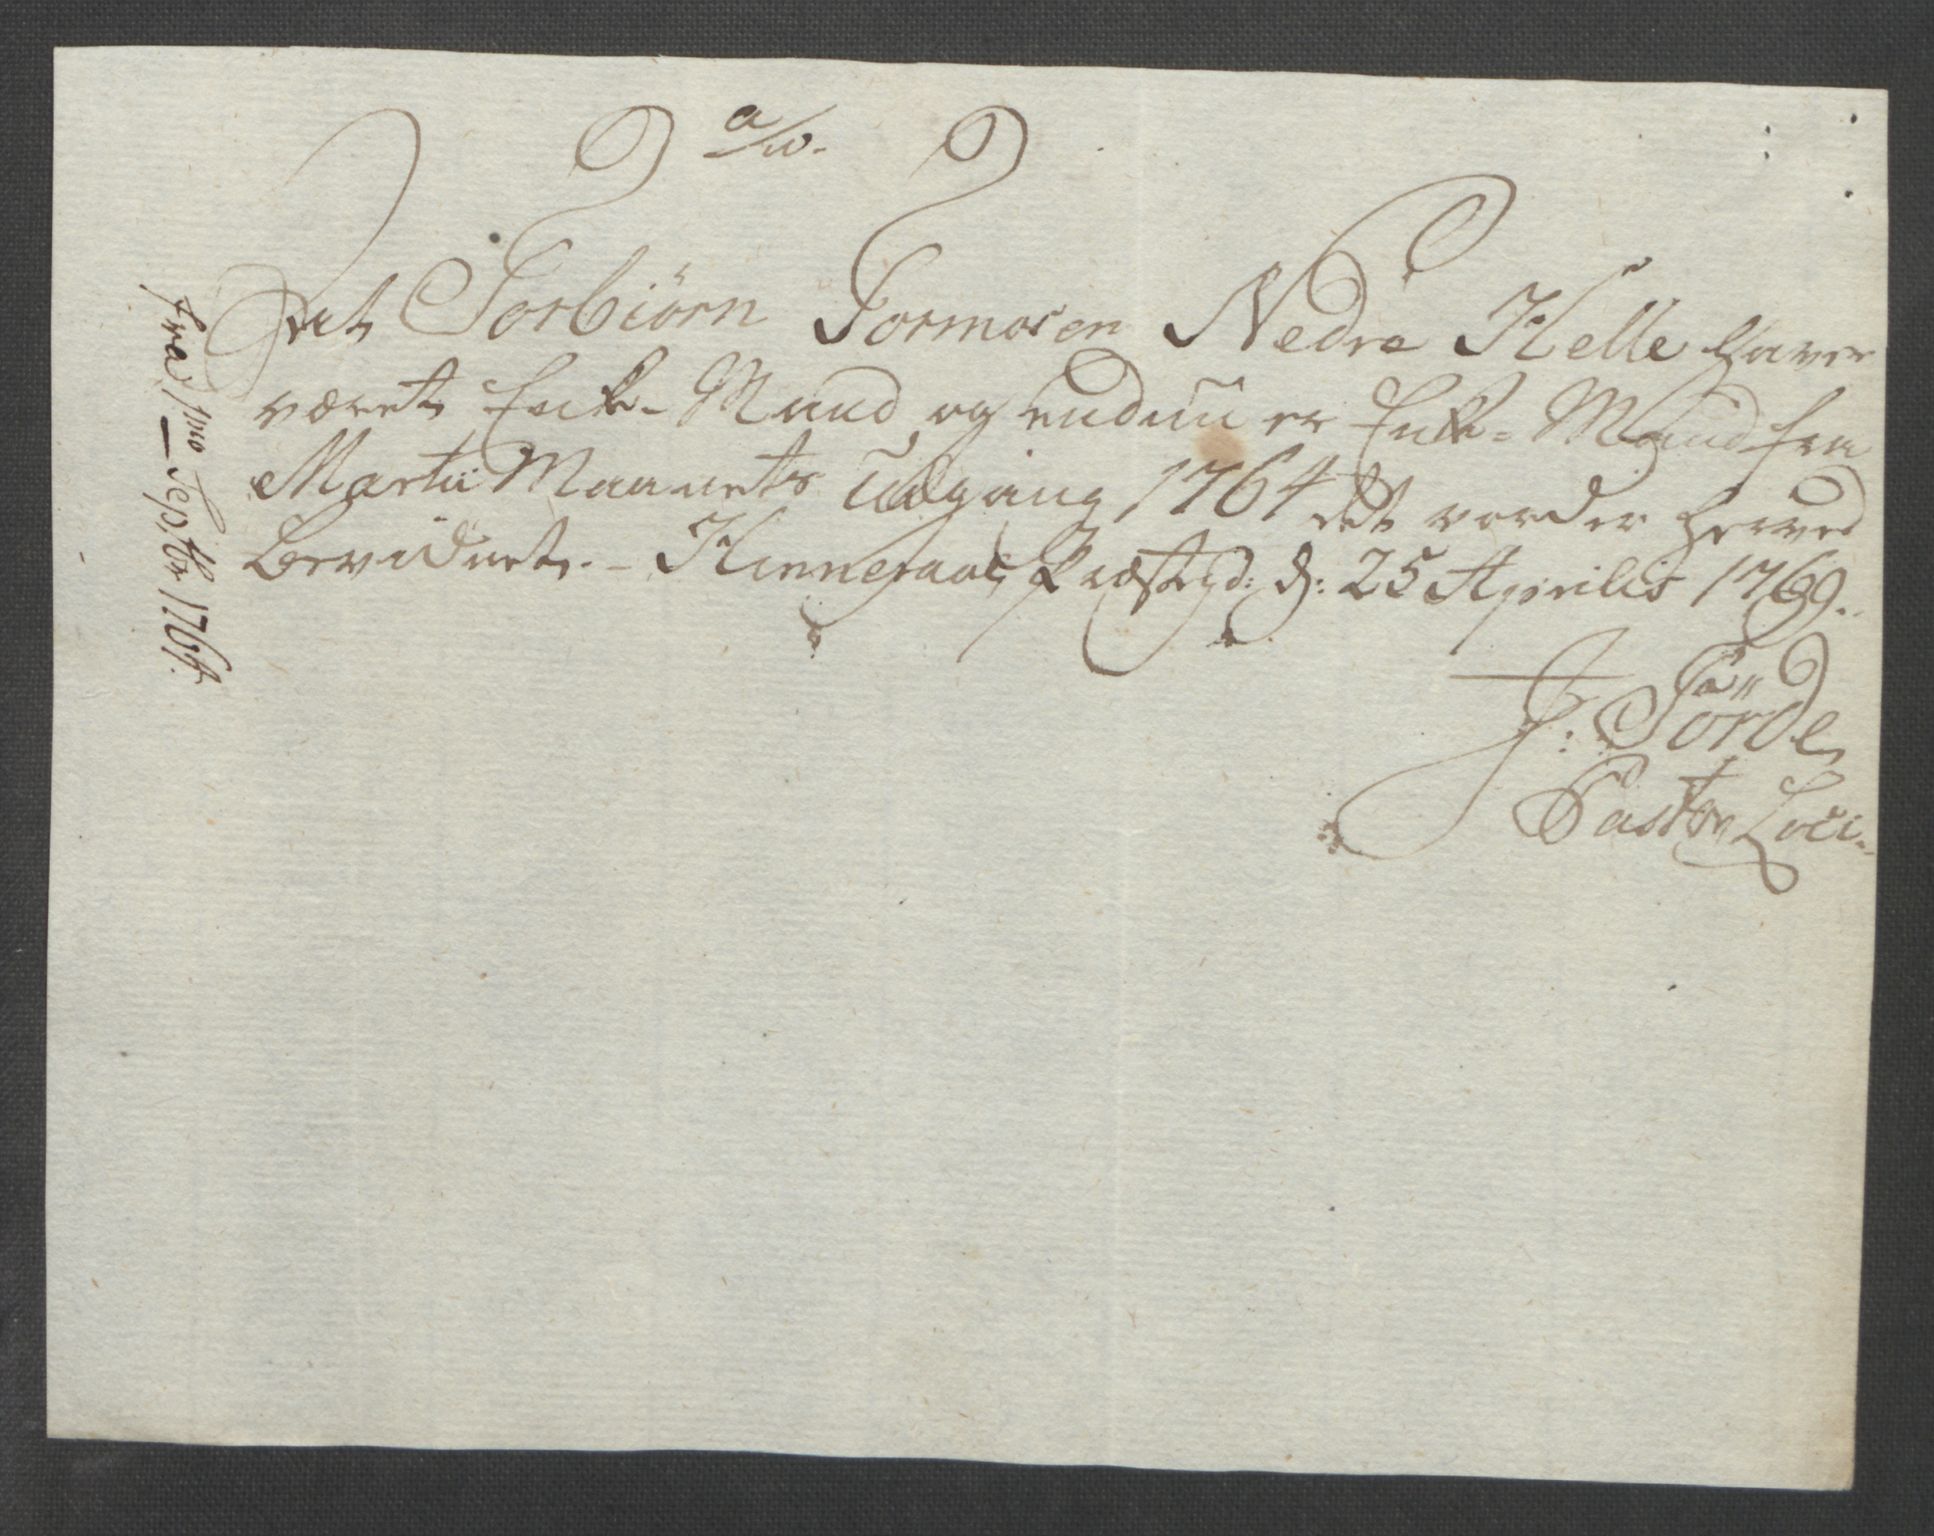 a/w.
At Torbiörn Tormosen Nedre Helle haver
været Enke-Mand, og enduu er Enke-Mand fra
Martii Maanets Udgang 1764 det vorder herved
bevidnet. - Hinneraae Præstegd: d: 25 Aprilis 1769.
J: Törde
Pastor Loci.
fra 1mo Septbr 1764.